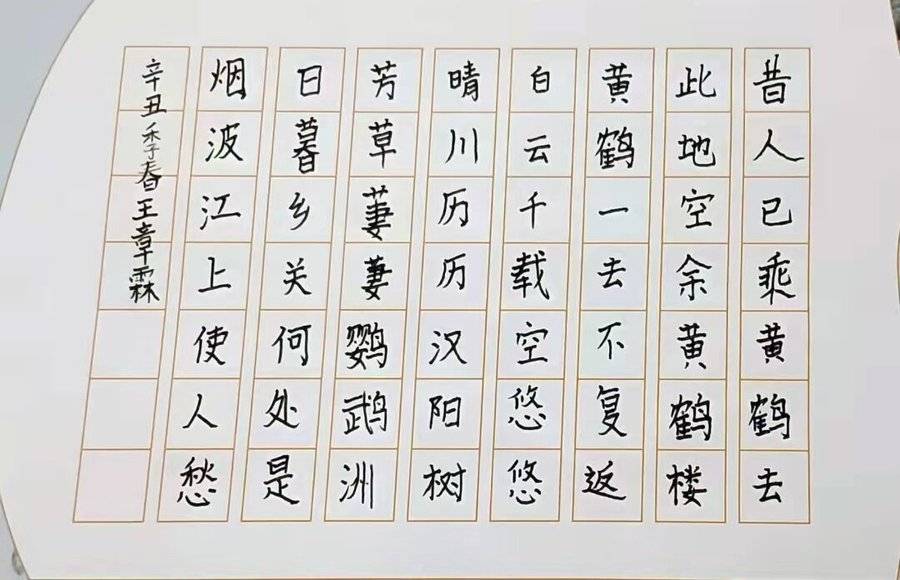 昔人已乘黄鹤去
此地空余黄鹤楼
黄鹤一去不复返
白云千载空悠悠
晴川历历汉阳树
芳草萋萋鹦鹉洲
日暮乡关何处是
烟波江上使人愁
辛丑季春王章霖